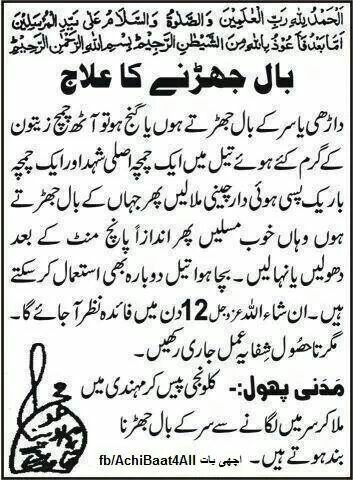 اَلْحَمْدُ لِلّٰہِ رَبِّ الْعٰلَمِیْنَ وَالصَّلٰوۃُ وَالسَّلَامُ عَلٰی سَیِّدِ الْمُرْسَلِیْنَ
اَمَّا بَعْدُ فَاَعُوْذُ بِاللّٰہِ مِنَ الشَّیْطٰنِ الرَّجِیْمِ بِسْمِ اللّٰہِ الرَّحْمٰنِ الرَّحِیْمِ
بال جھڑنے کا علاج
داڑھی یا سر کے بال جھڑتے ہوں یا گنج ہو تو آٹھ چمچ زیتون
کے گرم کئے ہوئے تیل میں ایک چمچہ اصلی شہد اور ایک چمچہ
باریک پسی ہوئی دار چینی ملا لیں پھر جہاں کے بال جھڑتے
ہوں وہاں خوب مسلیں پھر اندازاً پانچ منٹ کے بعد
دھولیں یا نہا لیں۔ بچا ہوا تیل دوبارہ بھی استعمال کر سکتے
ہیں۔ ان شاء اللہ عزوجل 12 دن میں فائدہ نظر آجائے گا۔
مگر تا حصُول شِفا یہ عمل جاری رکھیں۔
مَدَنی پھول:- کلونجی پیس کر مہندی میں
ملا کر سر میں لگانے سے سر کے بال جھڑنا
بند ہوتے ہیں۔
fb/AchiBaat4All اچھی بات